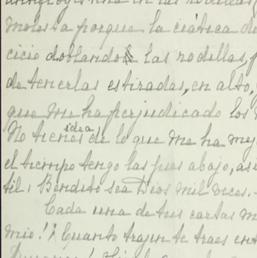 molesta porque la ciática de
cicio doblando las rodillas, p
de tenerlas estiradas, en alto,
que me ha perjudicado los
No tienes idea de lo que me ha mej
el tiempo tengo las pies abajo, as
til! Bendito sea Dios mil veces.-
Cada una de tus cartas m
mio! ¡Cuanto trajin te traes ent